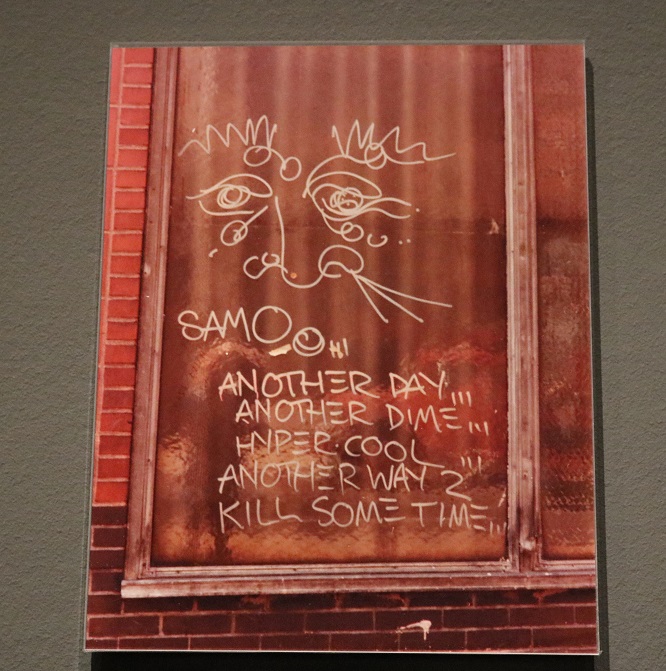 SAMO©
HI
ANOTHER DAY,,,
ANOTHER DIME,,,
HYPER COOL,,,
ANOTHER WAY 2
KILL SOME TIME,,,